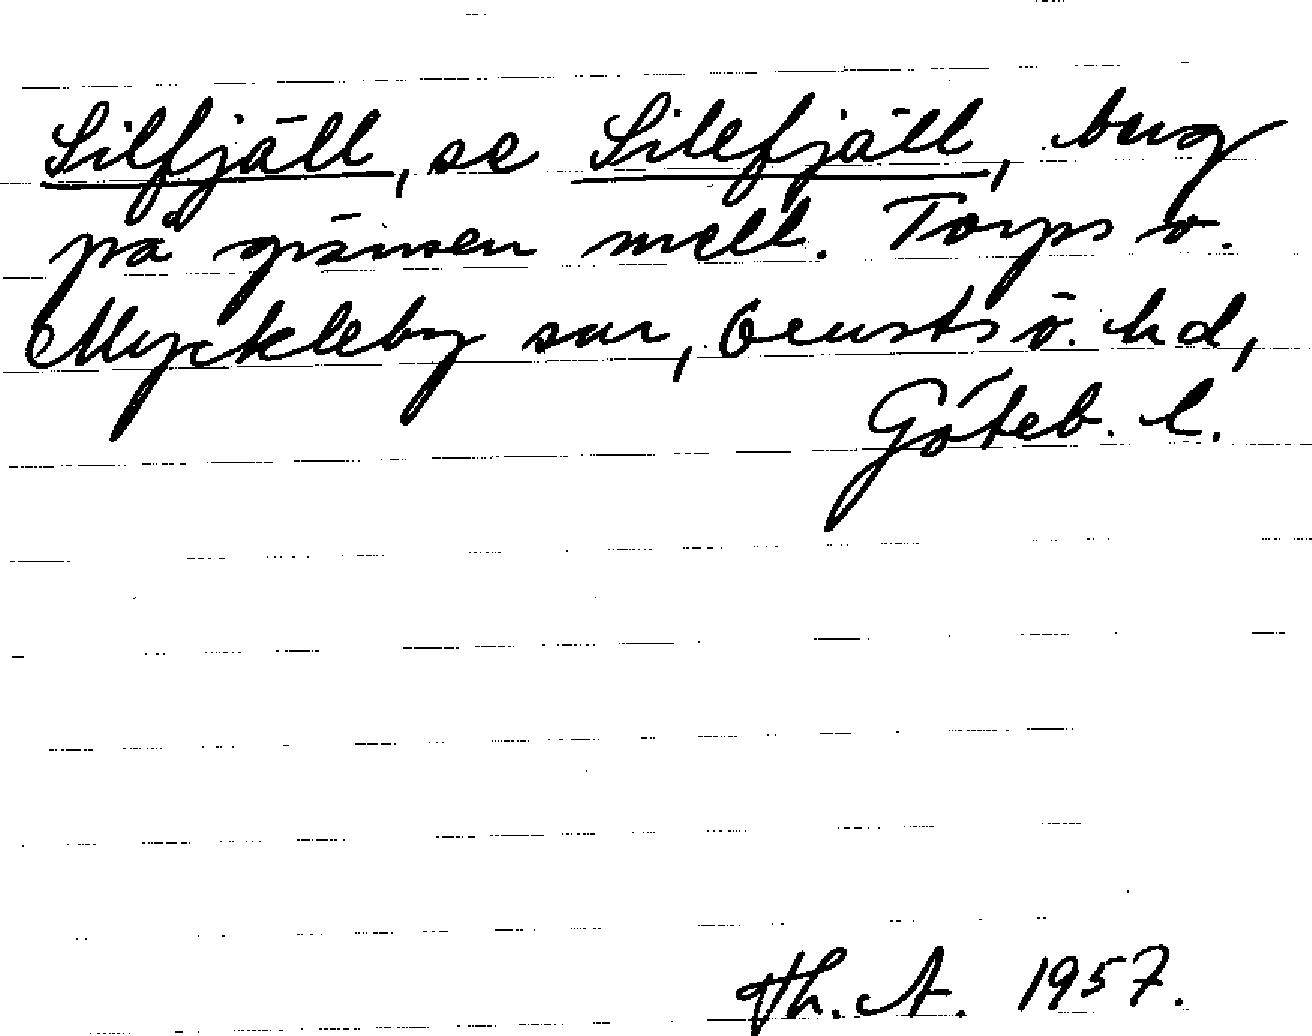 Silfjäll, se Silefjäll, berg
på gränsen mell. Torps o.
Myckleby snr, Orusts ö. hd,
Göteb. l.
Th. A. 1957.